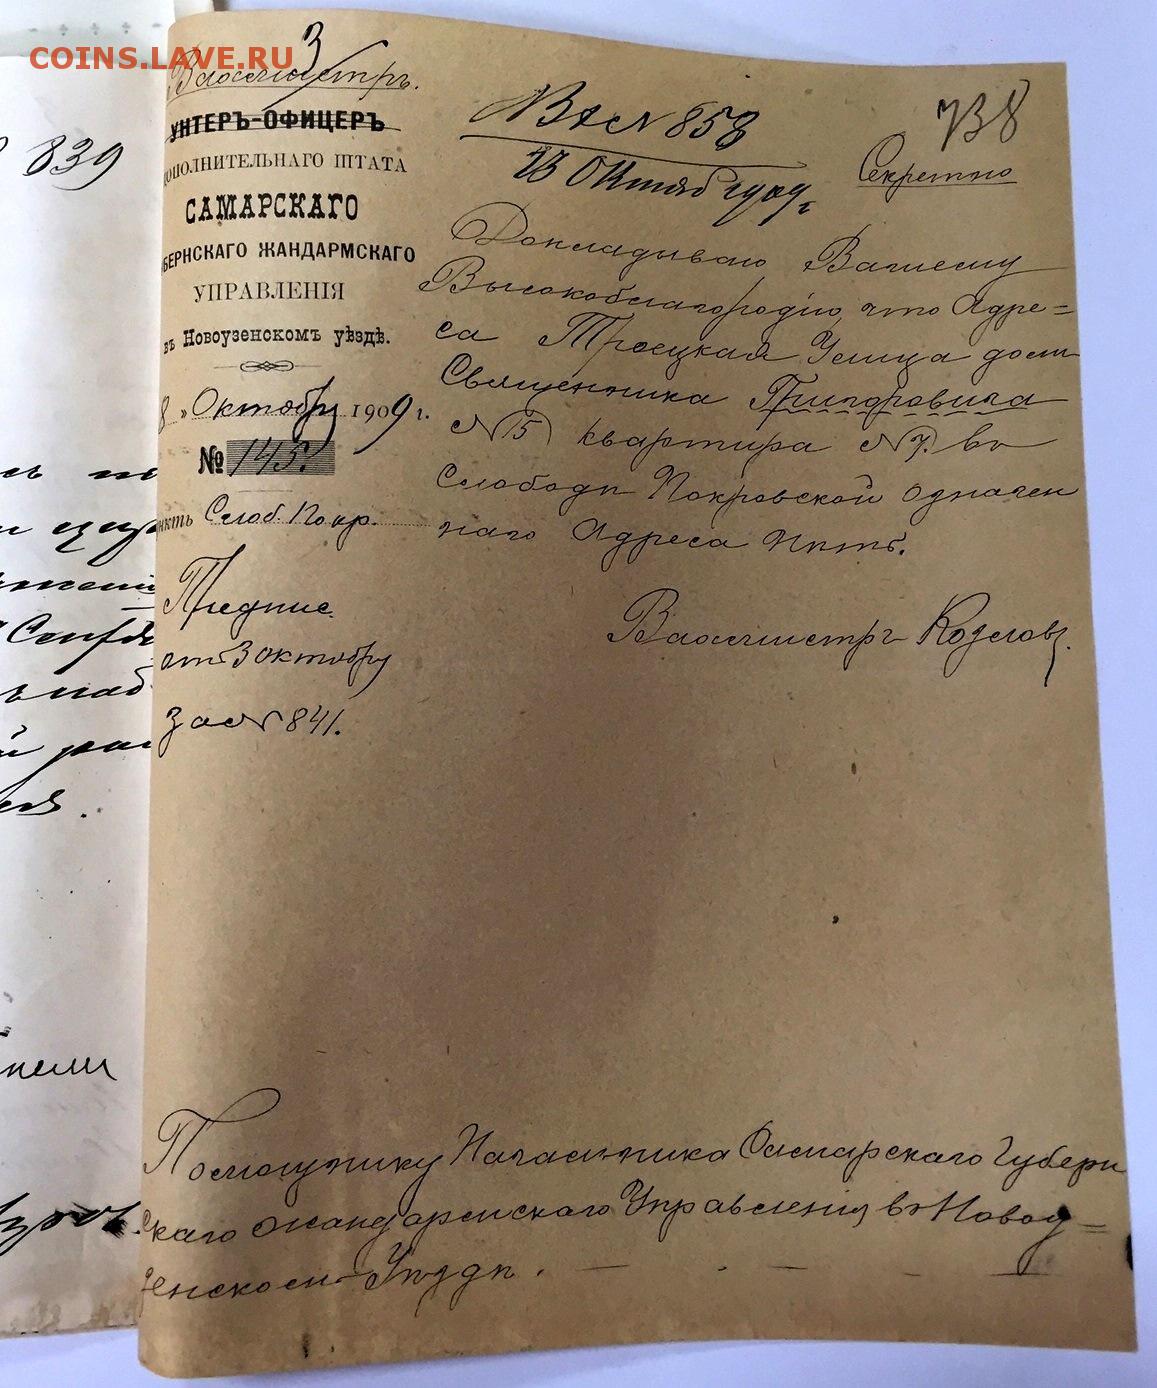 COINS.LAVE.RU
3
Вахмистръ.
УНТЕРЪ-ОФИЦЕРЪ
ДОПОЛНИТЕЛЬНАГО ШТАТА
САМАРСКАГО
БЕРНСКАГО ЖАНДАРМСКАГО
УПРАВЛЕНІЯ
въ Новоузенскомъ уѣздѣ.
8 „ Октября 1909 г.
№ 145.
нктъ Слоб. Покр.
Предпис.
отъ 3 октября
за № 841.
Вх № 858
13 Октяб 1909 г.
738
Секретно
Докладываю Вашему
Высокоблагородію, что Адре=
са Троецкая Улица домъ
Священника Григоровича
№ 15 квартира № 7. въ
Слободѣ Покровской означен
наго Адреса нѣтъ.
Вахмистръ Козловъ.
Помощнику Начальника Самарскаго Губерн
скаго Жандармскаго Управленія въ Новоу=
зенскомъ Уѣздѣ.
839